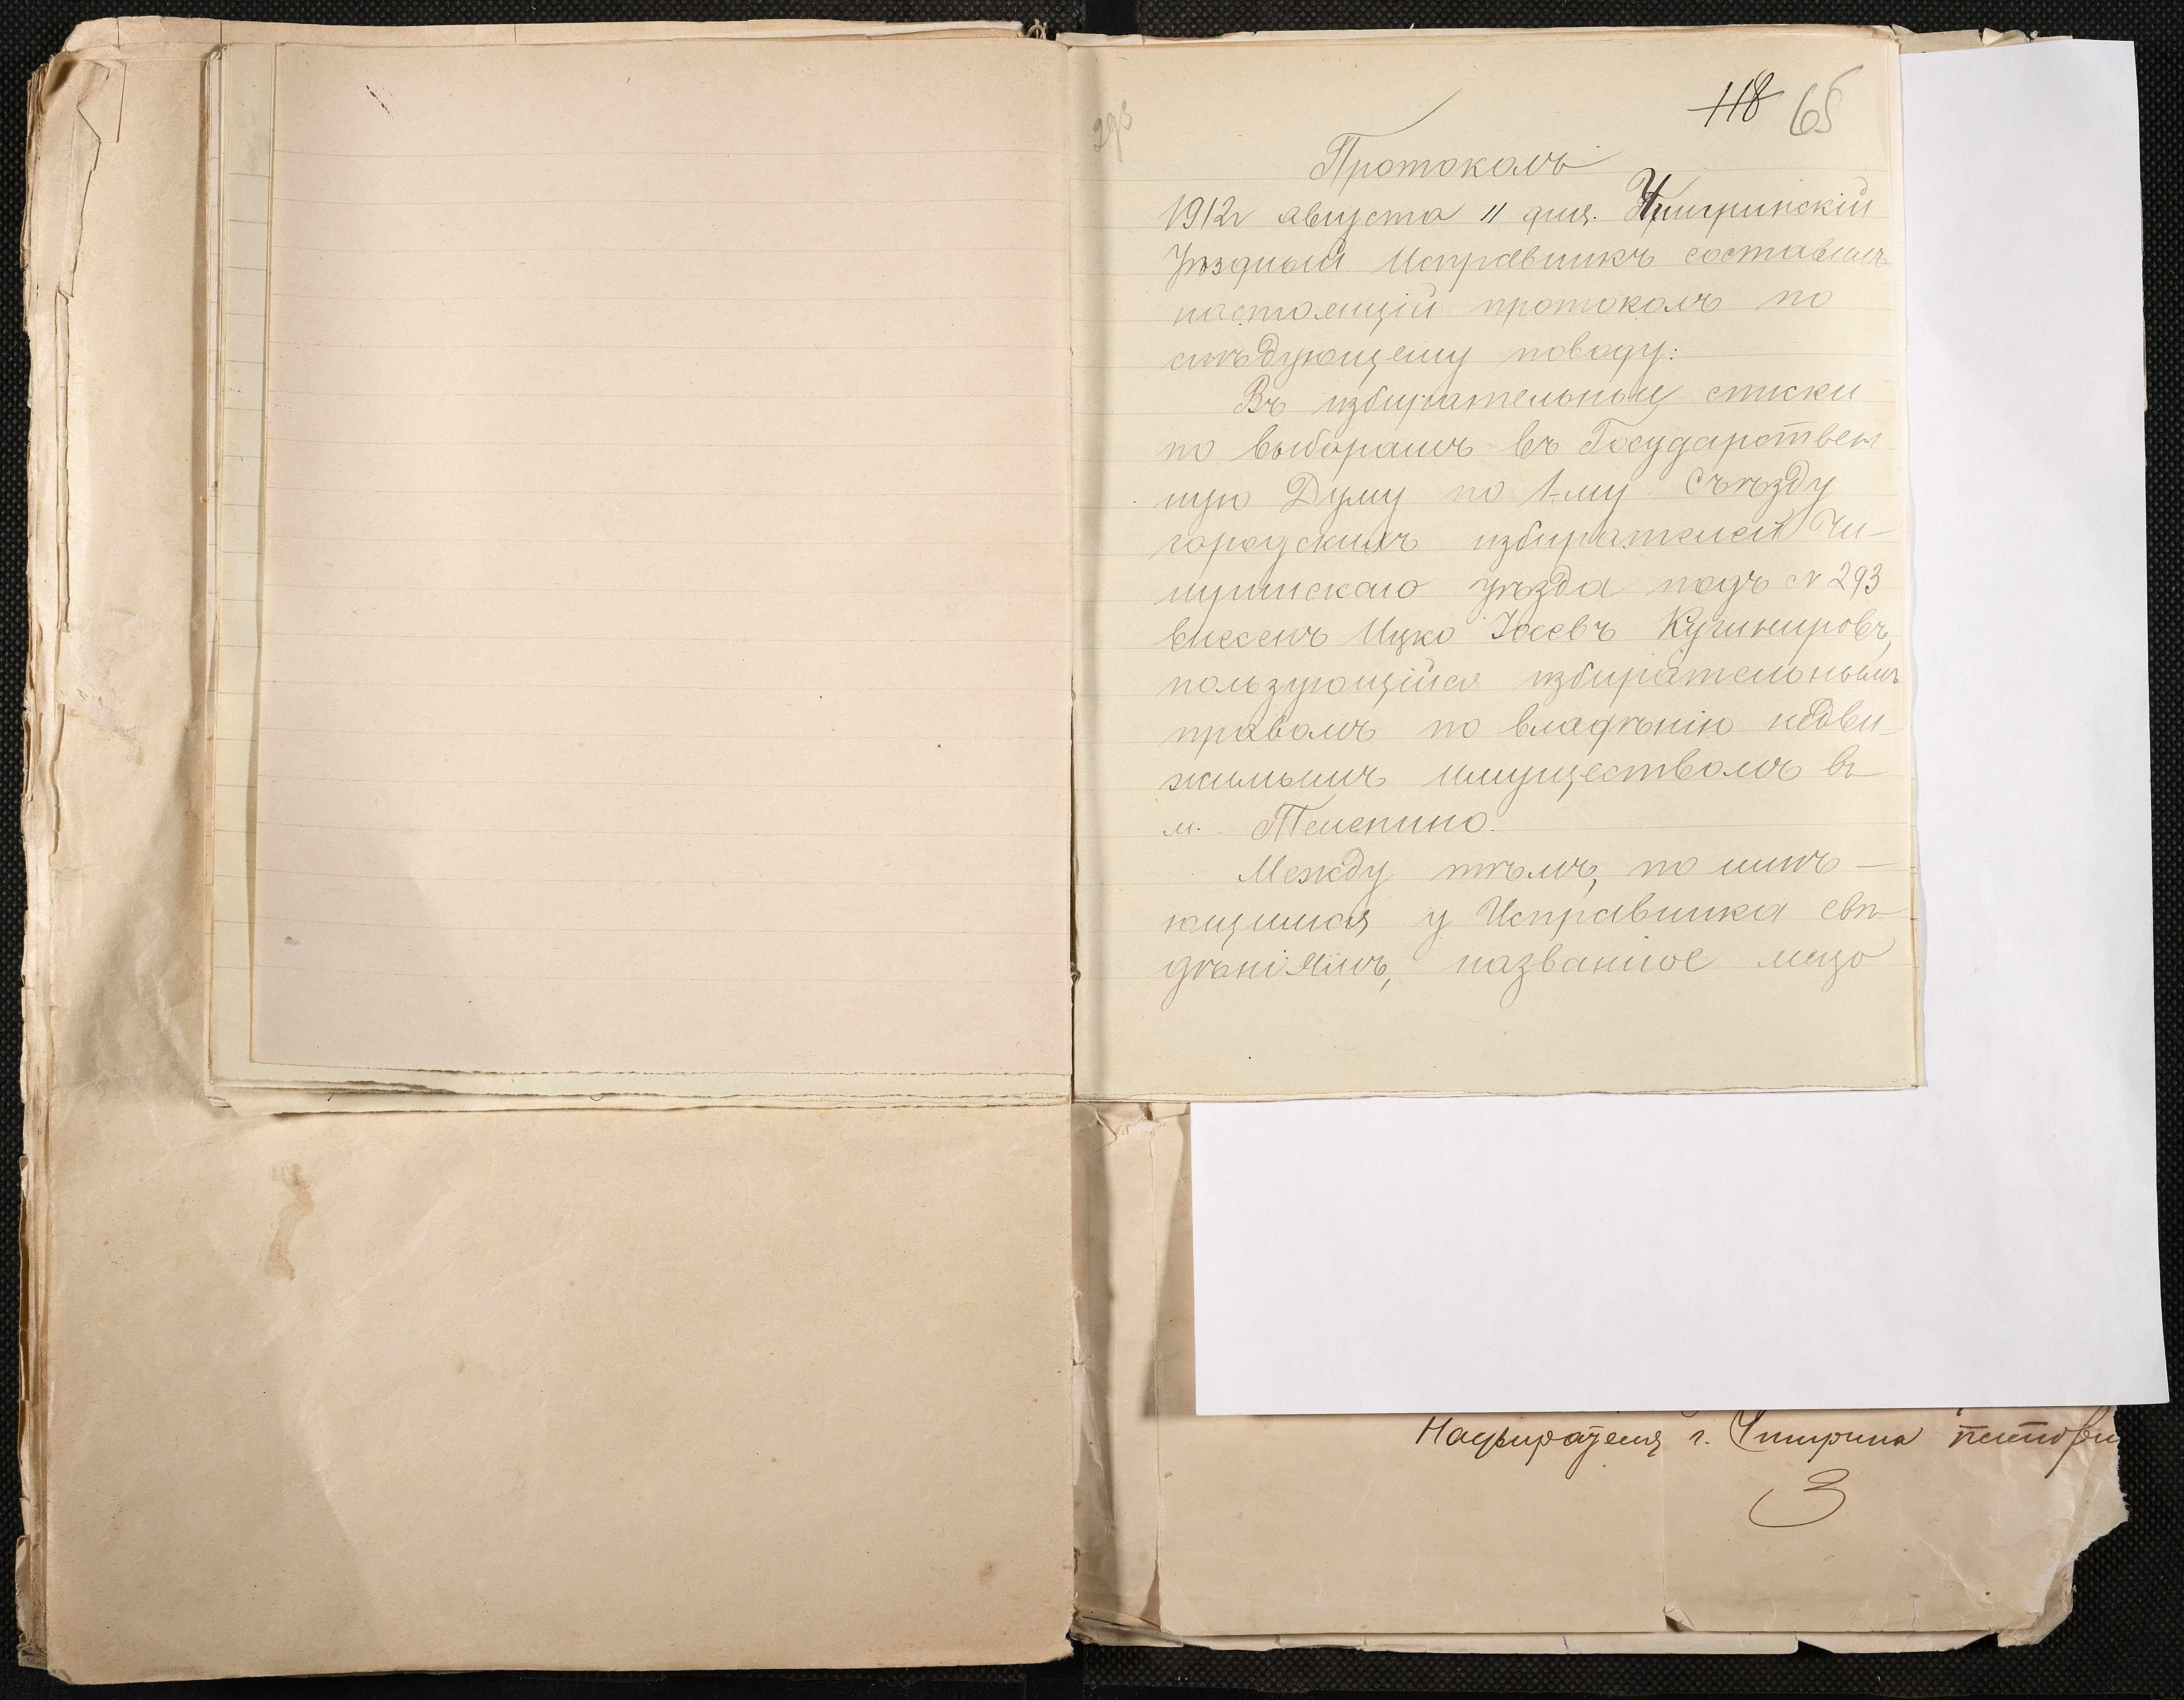 118 65
293
Протоколъ
1912г августа 11 дня. Чигиринскій
Уѣздный Исправникъ составилъ
настоящій протоколъ по
слѣдующему поводу:
Въ избирательные списки
по выборамъ въ Государствен
ную Думу по 1-му Съѣзду
городскихъ избирателей Чи-
гиринскаго уѣзда подъ № 293
внесенъ Ицко Іосевъ Кучинировъ,
пользующійся избирательнымъ
правомъ по владѣнію недви-
жимымъ имуществомъ въ
м. Телепино.
Между тѣмъ, по имѣ-
ющимся у Исправника свѣ-
дѣніямъ, названное лицо
Надзирателя г. Чигирина